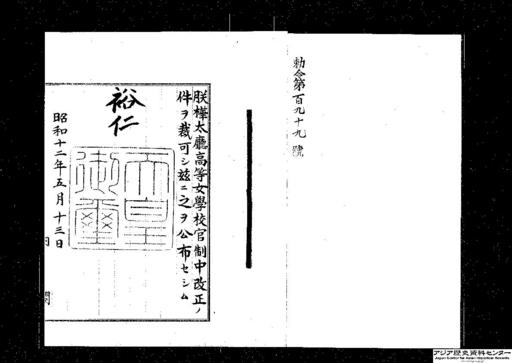 勅令第百九十九號
朕樺太廳高等女學校官制中改正ノ
件ヲ裁可シ茲ニ之ヲ公布セシム
裕仁
天皇
御璽
昭和十二年五月十三日
内閣
アジア歴史資料センター
Japan Center for Asian Historical Records